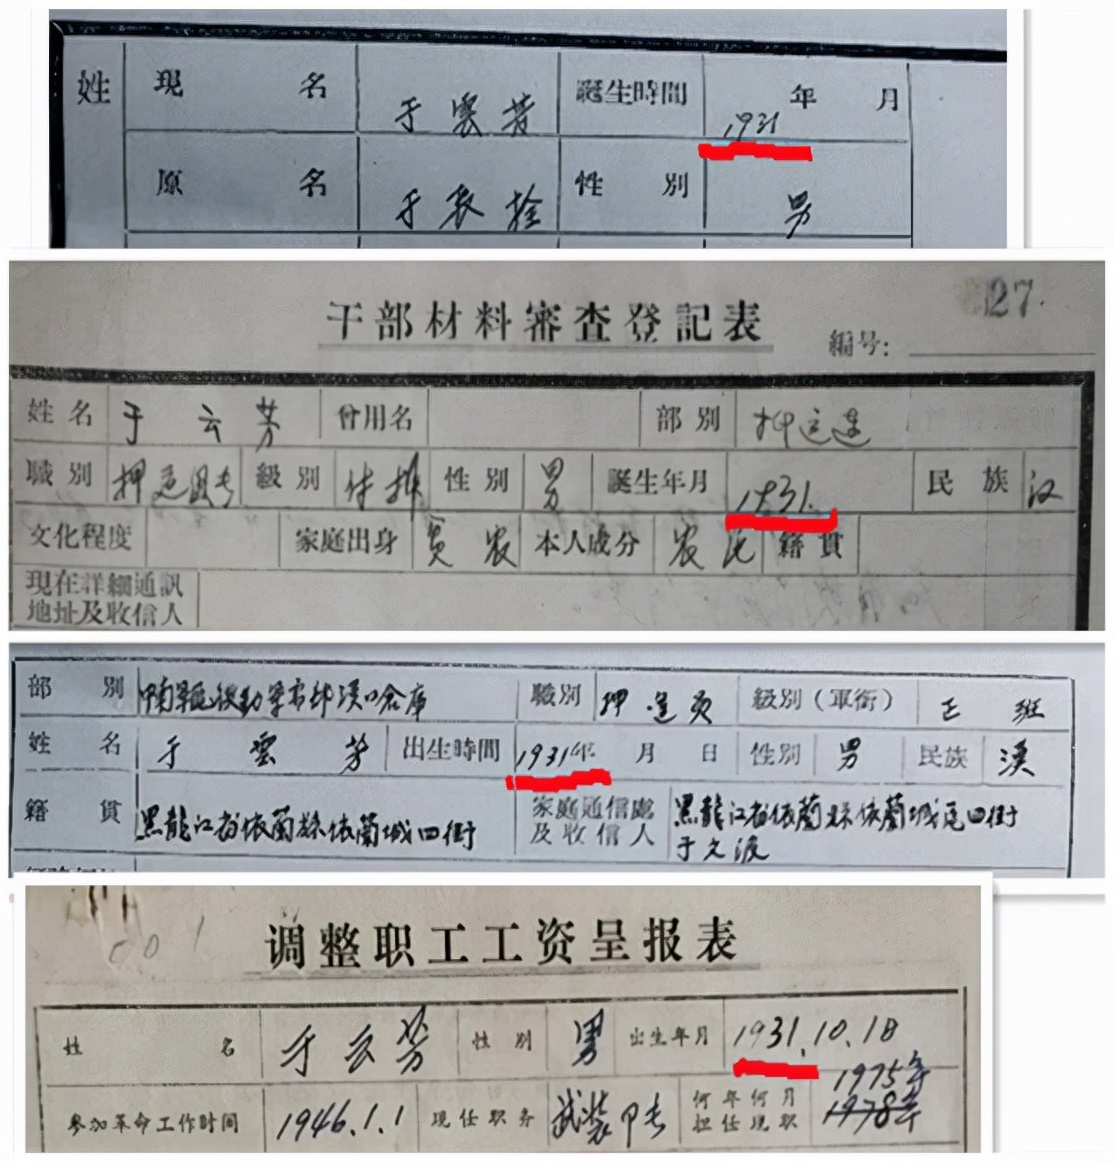 姓 現名 于雲芳 誕生時間 1931年 月
原名 于长拴 性別 男
27
干部材料審査登記表
編号:
姓名 于云芳 曾用名 部別 押运连
職別 押运 級別 性別 男 誕生年月 1931. 民族 汉
文化程度 家庭出身 贫农 本人成分 农民 籍貫
現在詳細通訊
地址及收信人
部別 汉口倉庫 職別 押運員 級別(軍銜) 正班
姓名 于雲芳 出生時間 1931年 月 日 性別 男 民族 漢
籍貫 黑龍江省依蘭縣依蘭城四街 家庭通信處 黑龍江省依蘭縣依蘭城 四街
及收信人 于文
001
调整职工工资呈报表
姓名 于云芳 性别 男 出生年月 1931.10.18
1975年
参加革命工作时间 1946.1.1 现任职务 武装 何年何月 1978年
担任现职